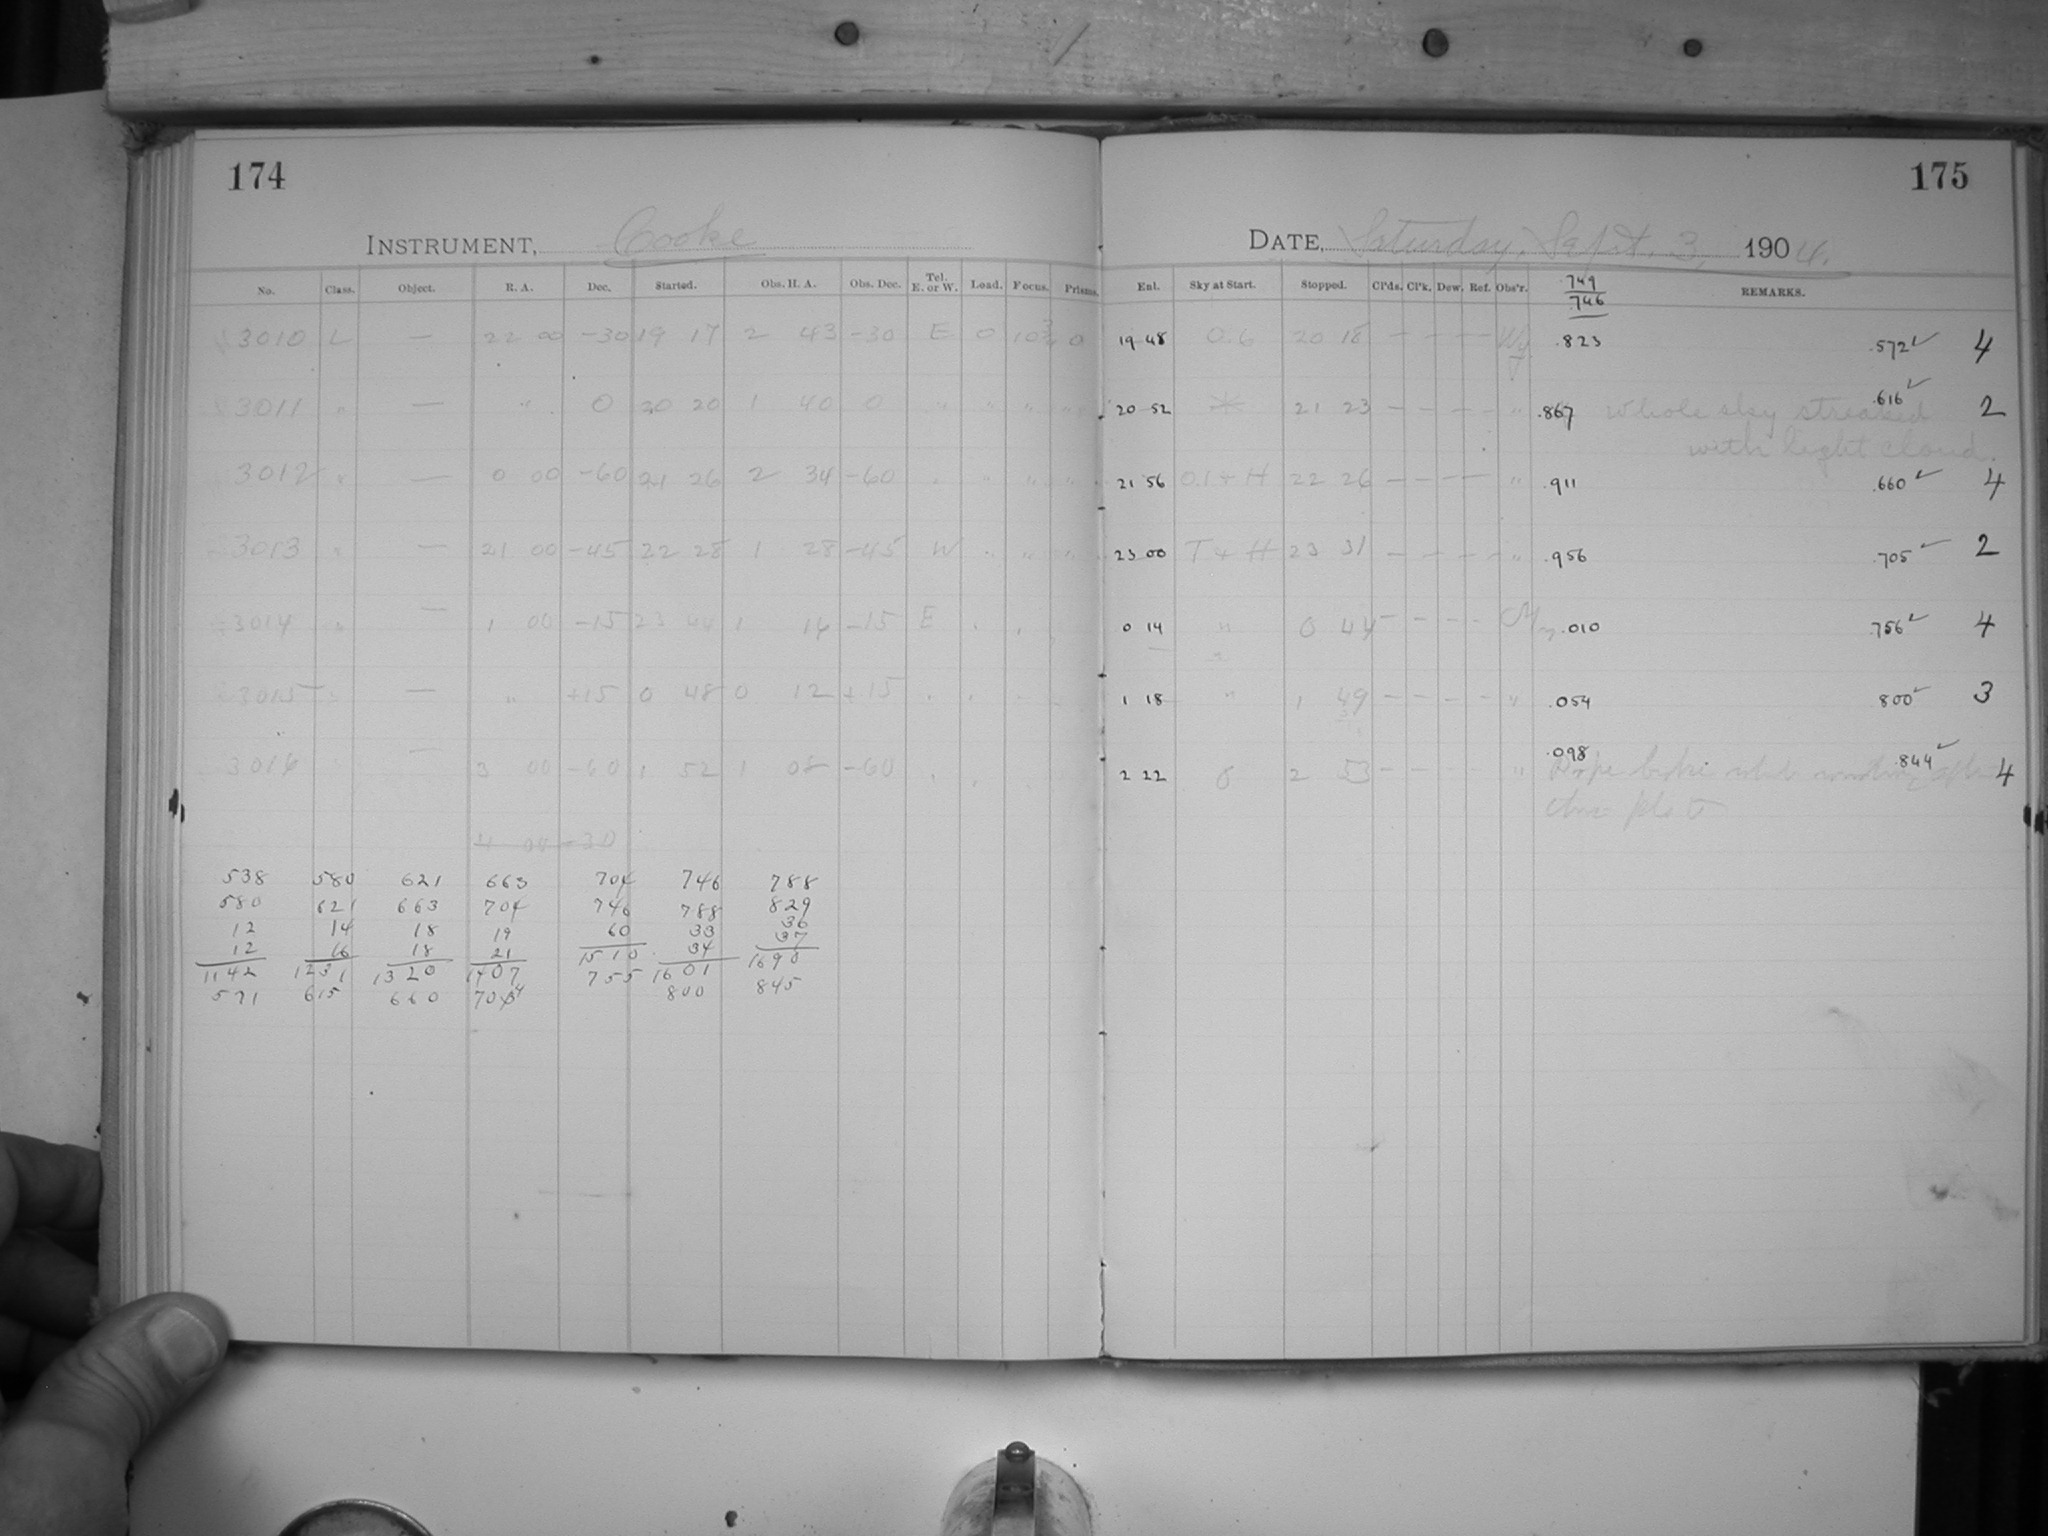 174
175
INSTRUMENT, Cooke
DATE, Saturday, Sept. 3, 1904.
No. Class. Object. R. A. Dec. Started. Obs. H. A. Obs. Dec. Tel. E. or W. Load. Focus. Prisms. Enl. Sky at Start. Stopped. Cl'ds. Cl'k. Dew. Ref. Obs'r. 749 REMARKS.
746
3010 L — 22 00 -30 19 17 2 43 -30 E 0 10 3/4 0 19 48 0.6 20 18 — — — — Wy. .823 .572✓ 4
3011 " — " 0 20 20 1 40 0 " " " " 20 52 21 23 — — — — " .867 Whole sky streaked .616✓ 2
with light cloud.
3012 " — 0 00 -60 21 26 2 34 -60 " " " " 21 56 0.1 + H 22 26 — — — — " .911 .660✓ 4
3013 " — 21 00 -45 22 28 1 28 -45 W " " " 23 00 T + H 23 31 — — — — " .956 .705✓ 2
3014 " — 1 00 -15 23 44 1 14 -15 E " " 0 14 " 0 44 — — — — .010 .756✓ 4
3015 " — " +15 0 48 0 12 +15 " " 1 18 " 1 49 — — — — " .054 800✓ 3
3016 — 3 00 -60 1 52 1 08 -60 " " 2 22 0 2 53 — — — — " .098 Rope broke while winding after .844✓ 4
4 08 -30
538 580 621 663 704 746 788
580 621 663 704 746 788 829
12 14 18 19 60 33 36
12 16 18 21 1510 34 37
1142 1231 1320 1407 755 1601 1690
571 615 660 704 800 845